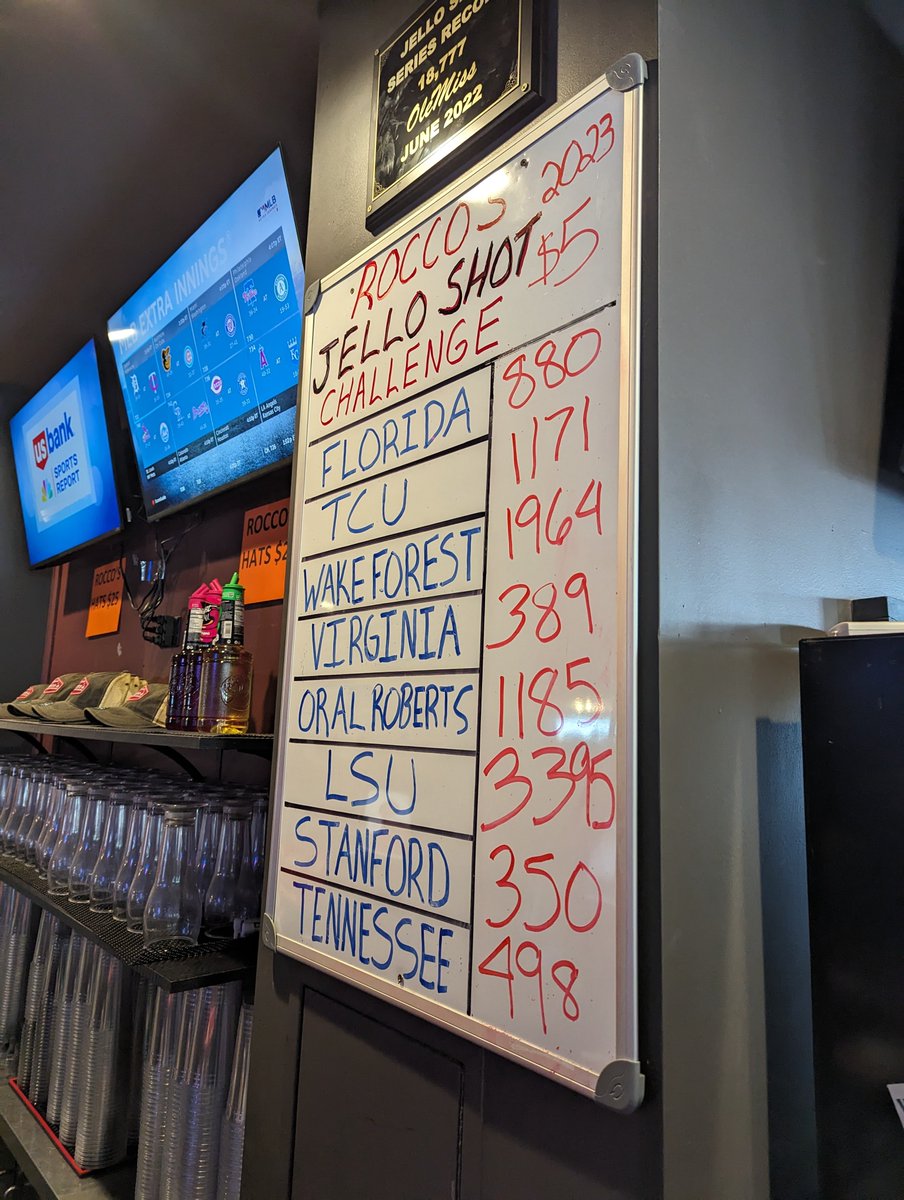 JELLO S
SERIES RECO
18,777
Ole Miss
JUNE 2022
ROCCOS 2023
JELLO SHOT $5
CHALLENGE
FLORIDA 880
TCU 1171
WAKE FOREST 1964
VIRGINIA 389
ORAL ROBERTS 1185
LSU 3395
STANFORD 350
TENNESSEE 498
MLB
EXTRA INNINGS
usbank
SPORTS
REPORT
ROCCO'S
HATS $25
ROCCO
HATS $2